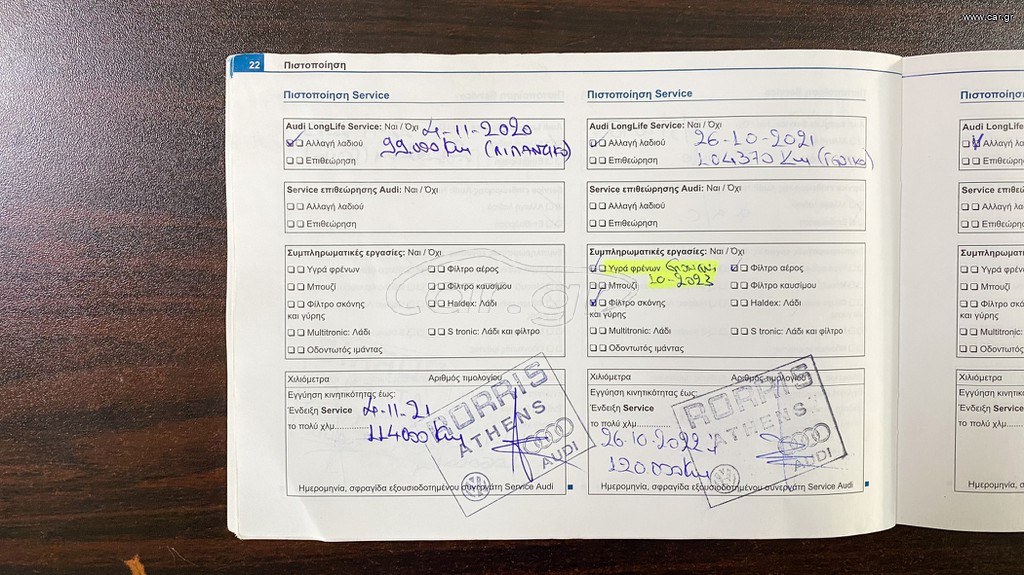 www.car.gr
22 Πιστοποίηση
Πιστοποίηση Service
Audi LongLife Service: Ναι / Όχι 4-11-2020
Αλλαγή λαδιού 99.000 Km (ΛΙΠΑΝΤΙΚΟ)
Επιθεώρηση
Service επιθεώρησης Audi: Ναι / Όχι
Αλλαγή λαδιού
Επιθεώρηση
Συμπληρωματικές εργασίες: Ναι / Όχι
Υγρά φρένων Φίλτρο αέρος
Μπουζί Φίλτρο καυσίμου
Φίλτρο σκόνης Haldex: Λάδι
και γύρης
Multitronic: Λάδι S tronic: Λάδι και φίλτρο
Οδοντωτός ιμάντας
Χιλιόμετρα Αριθμός τιμολογίου
Εγγύηση κινητικότητας έως:
Ένδειξη Service 4-11-21
το πολύ χλμ. 114000 Km
RORRIS
ATHENS
AUDI
Ημερομηνία, σφραγίδα εξουσιοδοτημένου συνεργάτη Service Audi
Πιστοποίηση Service
Audi LongLife Service: Ναι / Όχι
Αλλαγή λαδιού 26-10-2021
Επιθεώρηση 104370 Km
Service επιθεώρησης Audi: Ναι / Όχι
Αλλαγή λαδιού
Επιθεώρηση
Συμπληρωματικές εργασίες: Ναι / Όχι
Υγρά φρένων Φίλτρο αέρος
10-2023
Μπουζί Φίλτρο καυσίμου
Φίλτρο σκόνης Haldex: Λάδι
και γύρης
Multitronic: Λάδι S tronic: Λάδι και φίλτρο
Οδοντωτός ιμάντας
Χιλιόμετρα Αριθμός τιμολογίου
Εγγύηση κινητικότητας έως:
Ένδειξη Service
το πολύ χλμ.
26-10-2022
120000 Km
RORRIS
ATHENS
AUDI
Ημερομηνία, σφραγίδα εξουσιοδοτημένου συνεργάτη Service Audi
car.gr